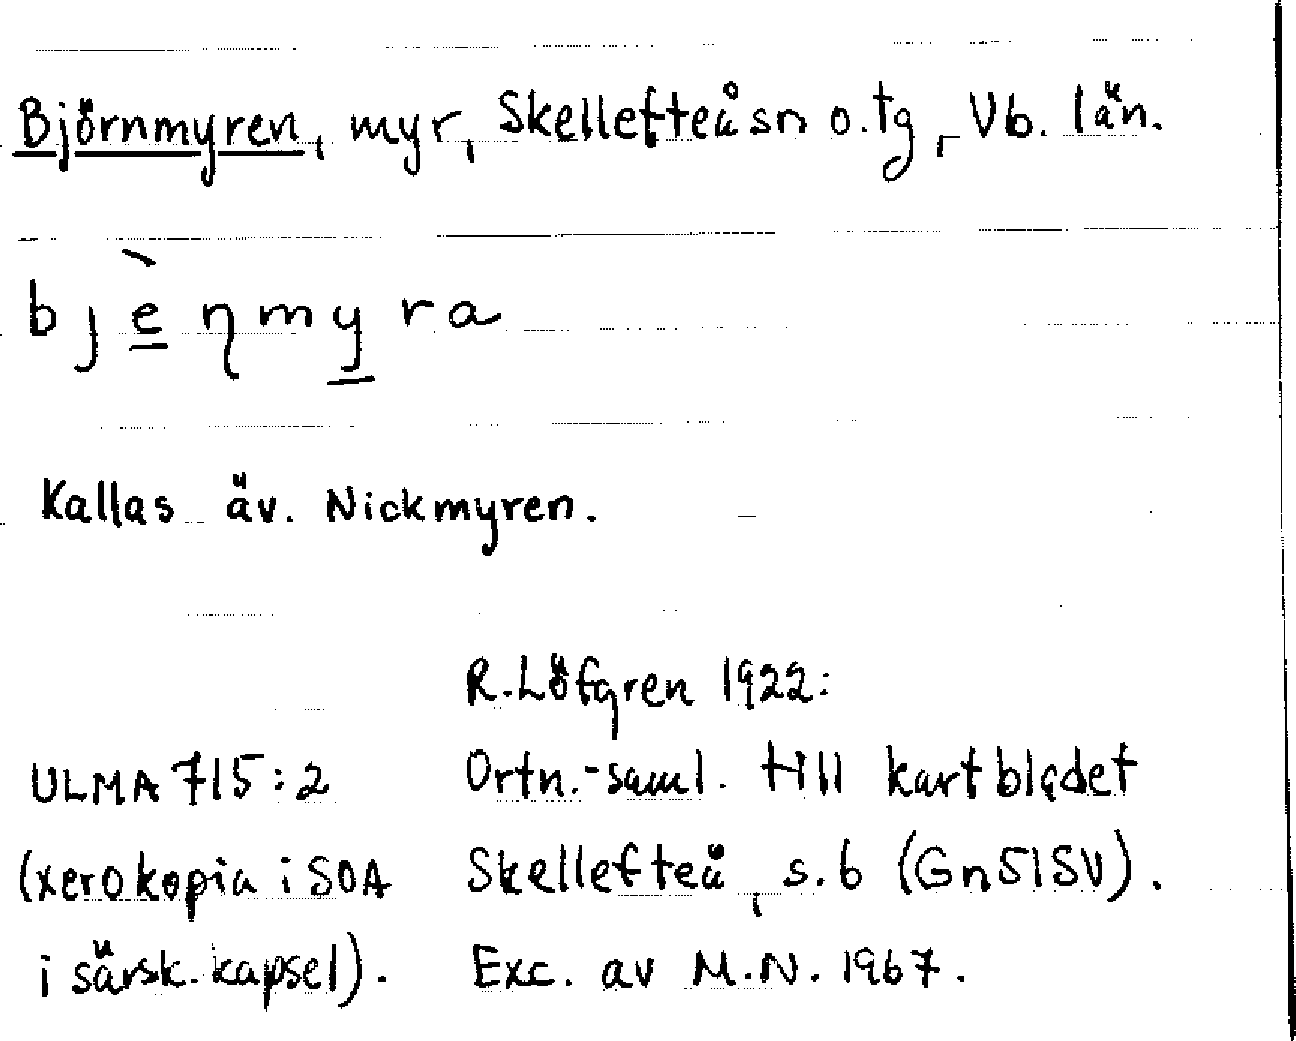 Björnmyren, myr, Skellefteå sn o. tg, Vb. län.
bjèņmyra
Kallas äv. Nickmyren.
R. Löfgren 1922:
ULMA 715:2 Ortn.-saml. till kartbladet
(xerokopia i SOA Skellefteå, s. 6 (Gn51SV).
i särsk. kapsel). Exc. av M.N. 1967.